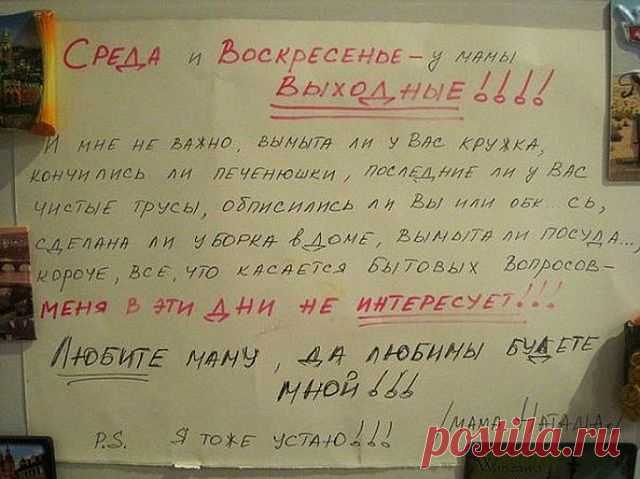 Среда и Воскресенье – у мамы
выходные!!!!
И мне не важно, вымыта ли у Вас кружка,
кончились ли печенюшки, последние ли у Вас
чистые трусы, обписились ли Вы или обк...сь,
сделана ли уборка в доме, вымыта ли посуда...,
короче, все, что касается бытовых вопросов –
меня в эти дни не интересует!!!
Любите маму, да любимы будете
мной!!!
/мама Наташа.
P.S. Я тоже устаю!!!
postila.ru